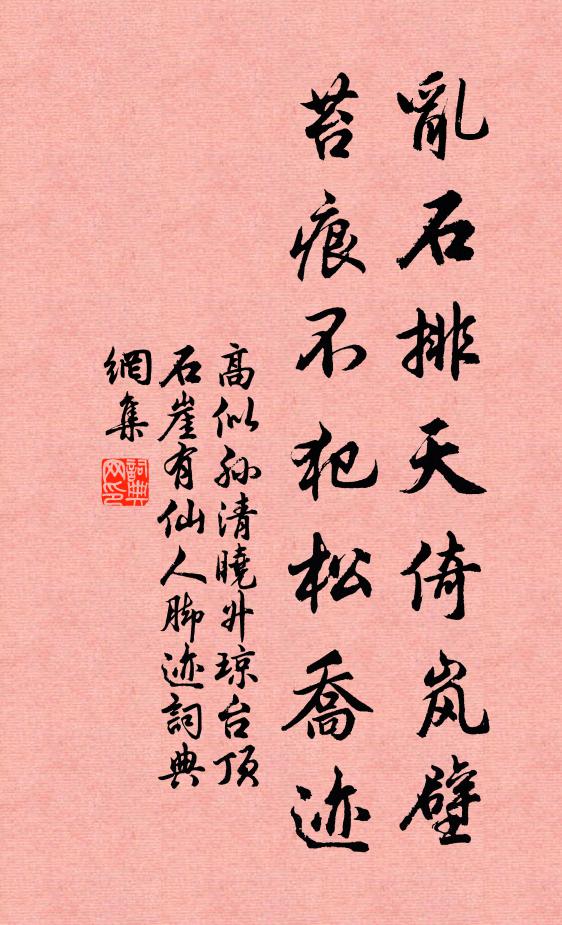 亂石排天倚岚壁
苔痕不犯松喬迹
高似孙清曉升琼台頂
石崖有仙人脚迹詞典
網集
詞典网印